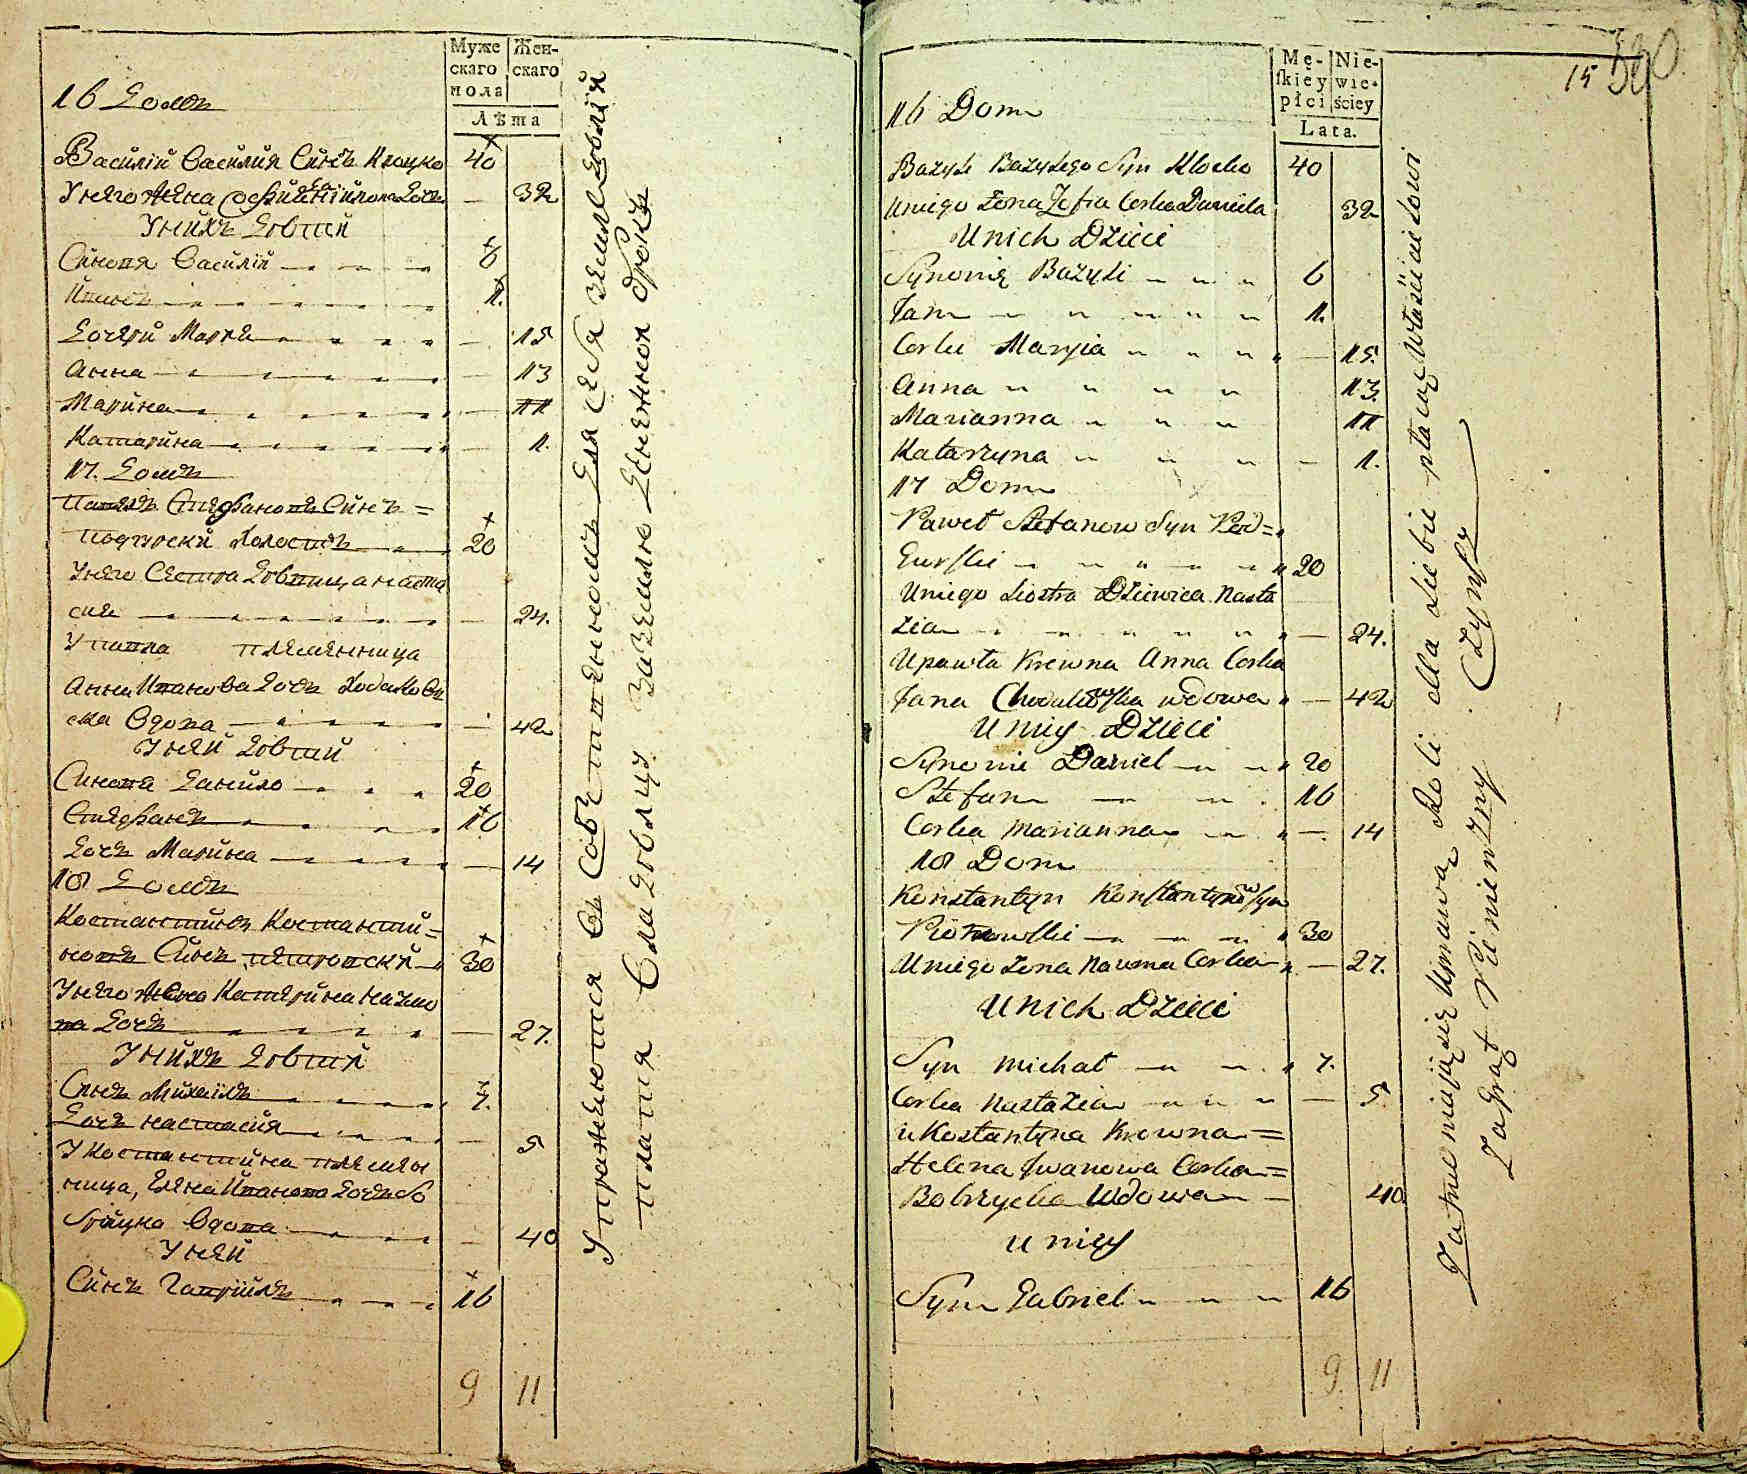 Муже Жен-
скаго скаго
пола
Лѣта
16 Домъ
Василій Василия Синъ Клоцко 40
У него жена Софія Данійлова Дочь — 32
У нихъ Дѣтй
Синовя Василій 6
Йванъ 1.
Дочери Маря — 15
Анна — 13
Марйна — 11
Катарйна 1.
17. Домъ
Павелъ Стефановъ Синъ =
Подгурскй Холостъ 20
У него Сестра Дѣвица наста
сия — 24.
У павла племенница
Анна Иванова Дочь Ходаков
ска Вдова — 42
У ней Дѣтй
Синовя Данйло 20
Стефанъ 16
Дочь Марйна — 14
18 Домъ
Костантинъ Костантй=
новъ Синъ петровскй 30
У него Жена Катерйна наумо
ва Дочь — 27.
У нйхъ Дѣтй
Синъ Михаилъ 7.
Дочь настасия — 5
У костантйна племен
ница, Елена Иванова Дочь Бо
брйцка Вдова — 40
У ней
Синъ Гаврйилъ 16
9 11
Упражняются въ Собственномъ Для Себя земледелій
платя Владѣлцу за землю Денежной Оброкъ
15 380
Mę- Nie-
skiey wie-
płci ściey
Lata.
16 Dom
Bazyli Bazylego Syn Klocko 40
U niego Zona Zofia Corka Daniela 32
U nich Dzieci
Synowie Bazyli 6
Jan 1.
Corki Maryia — 15.
Anna 13.
Marianna 11
Katarzyna — 1.
17 Dom
Paweł Stefanow Syn Pod=
Gurski 20
U niego Siostra Dziewica Nasta
zia — 24.
U pawła Krewna Anna Corka
Jana Chodakowska wdowa — 42
U niey Dzieci
Synowie Daniel 20
Stefan 16
Corka Marianna — 14
18 Dom
Konstantyn Konstantynow Syn
Piotrowski 30
U niego Zona Nauma Corka — 27.
U nich Dzieci
Syn Michał 7.
Corka Nastazia — 5
u Kostantyna Krewna =
Helena Jwanowa Corka =
Bobrzycka Wdowa — 40
u niey
Syn Gabriel 16
9. 11
Zatrudniaią się Uprawą Roli dla siebie płacąc właścicielowi
Za Grąt Pinienzny Czynsz